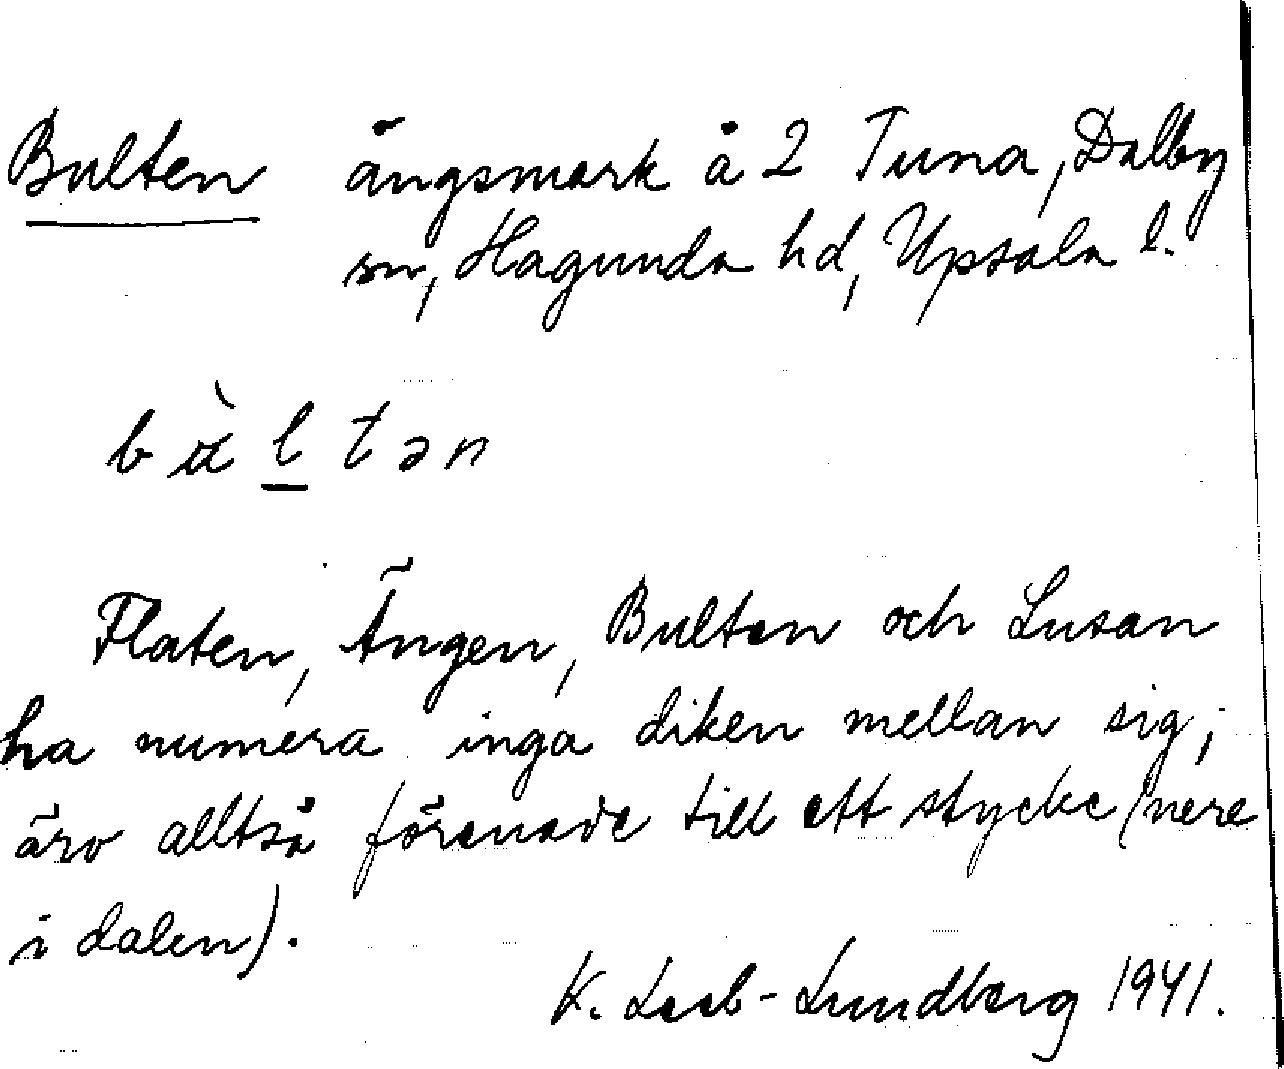 Bulten ängsmark å 2 Tuna, Dalby
sn, Hagunda hd, Upsala l.
bu̇̀l̲tən
Flaten, Ängen, Bulten och Lusan
ha numera inga diken mellan sig,
äro alltså förenade till ett stycke (nere
i dalen).
K. Leeb-Lundberg 1941.